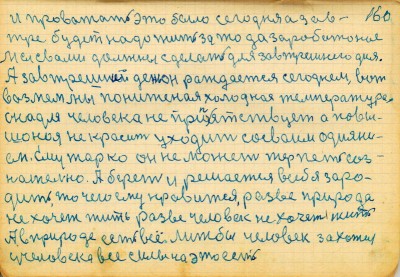 и провожать это было сегодня а зав- 160
тре будет надо жить за то да заработоное
Мы с вами должны сделать для завтрешнего дня.
А завтрешний день он раждается сегоднем, вот
возмем мы понитеная холодная температура
она для человека не прийятствует а повы-
шоная не красит уходит со своим одияни-
ем. ему жарко он не может терпеть соз-
нательно. А берет и решается в себя заро-
дить, то чего ему нравится, разве природа
не хочет жить разве человек не хочет жить
А в природе есть всё. Лиш бы человек захотел
у человека все силы на это есть